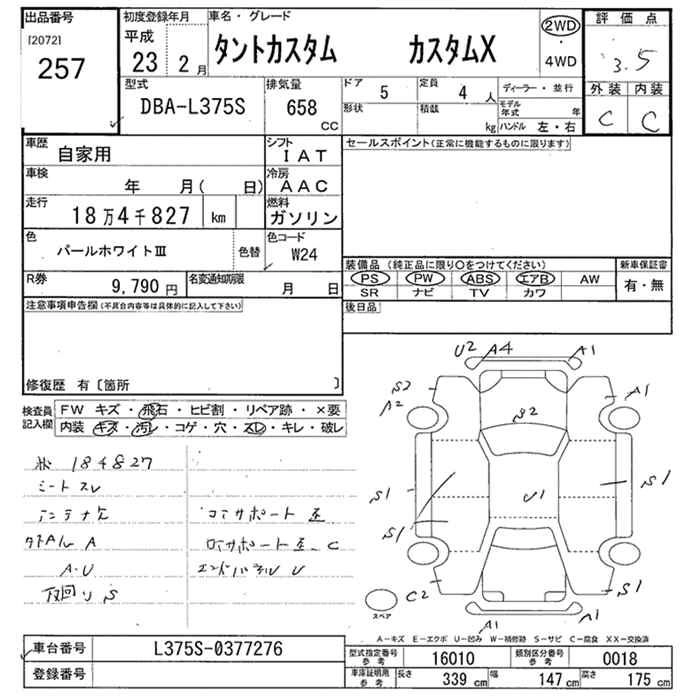 出品番号
[2072]
257
初度登録年月
平成
23 2月
車名・グレード
タントカスタム カスタムX
2WD
・
4WD
評価点
3.5
外装 内装
C C
型式
DBA-L375S
排気量
658
CC
ドア 5
定員 4 人
形状
積載 kg
ディーラー・並行
モデル年式 年
ハンドル 左・右
車歴
自家用
シフト
IAT
車検
年 月( 日)
冷房
AAC
走行
18万4千827 km
燃料
ガソリン
色
パールホワイトⅢ
色替
色コード
W24
R券
9,790 円
名変通知期限
月 日
セールスポイント(正常に機能するものに限ります)
装備品(純正品に限り○をつけてください)
新車保証書
PS PW ABS エアB AW
SR ナビ TV カワ
有・無
後日品
注意事項申告欄(不具合内容等は具体的に記入して下さい)
修復歴 有〔箇所 〕
検査員
記入欄
FW キズ・飛石・ヒビ割・リペア跡・×要
内装 キズ・汚レ・コゲ・穴・スレ・キレ・破レ
184827
シートスレ
A
A・U
S
コアサポート
コアサポート C
エンドパネル U
U2 A4 A1
S2
A2
A1
S2
S1
S1
U1
S1
C2
S1
A1
A1
スペア
A-キズ E-エクボ U-凹み W-補修跡 S-サビ C-腐食 XX-交換済
車台番号
L375S-0377276
登録番号
型式指定番号
参考
16010
類別区分番号
参考
0018
車庫証明用
参考
長さ 339 cm
幅 147 cm
高さ 175 cm